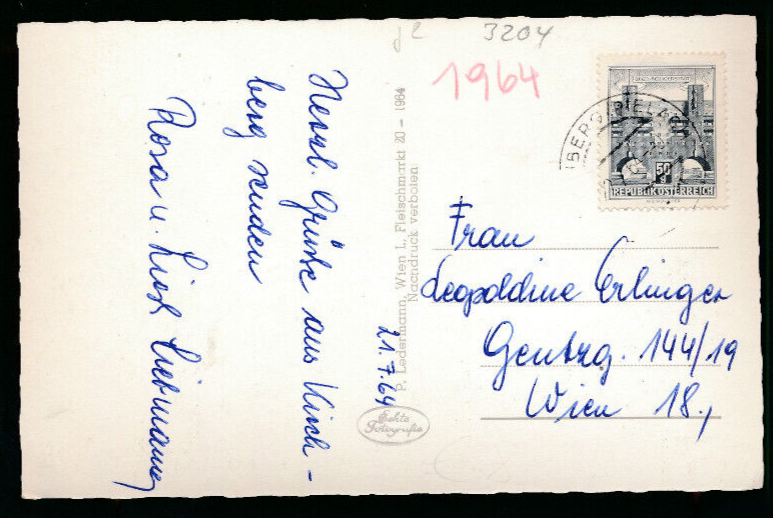 3204
1964
BERG PIELACH
50 g
REPUBLIK ÖSTERREICH
Herzl. Grüße aus Kirch-
berg senden
Rosa u. Liesl Liebmann
21.7.64
P. Ledermann, Wien I., Fleischmarkt 20 - 1964
Nachdruck verboten
Echte
Fotografie
Frau
Leopoldine Erlinger
Gentzg. 144/19
Wien 18.,